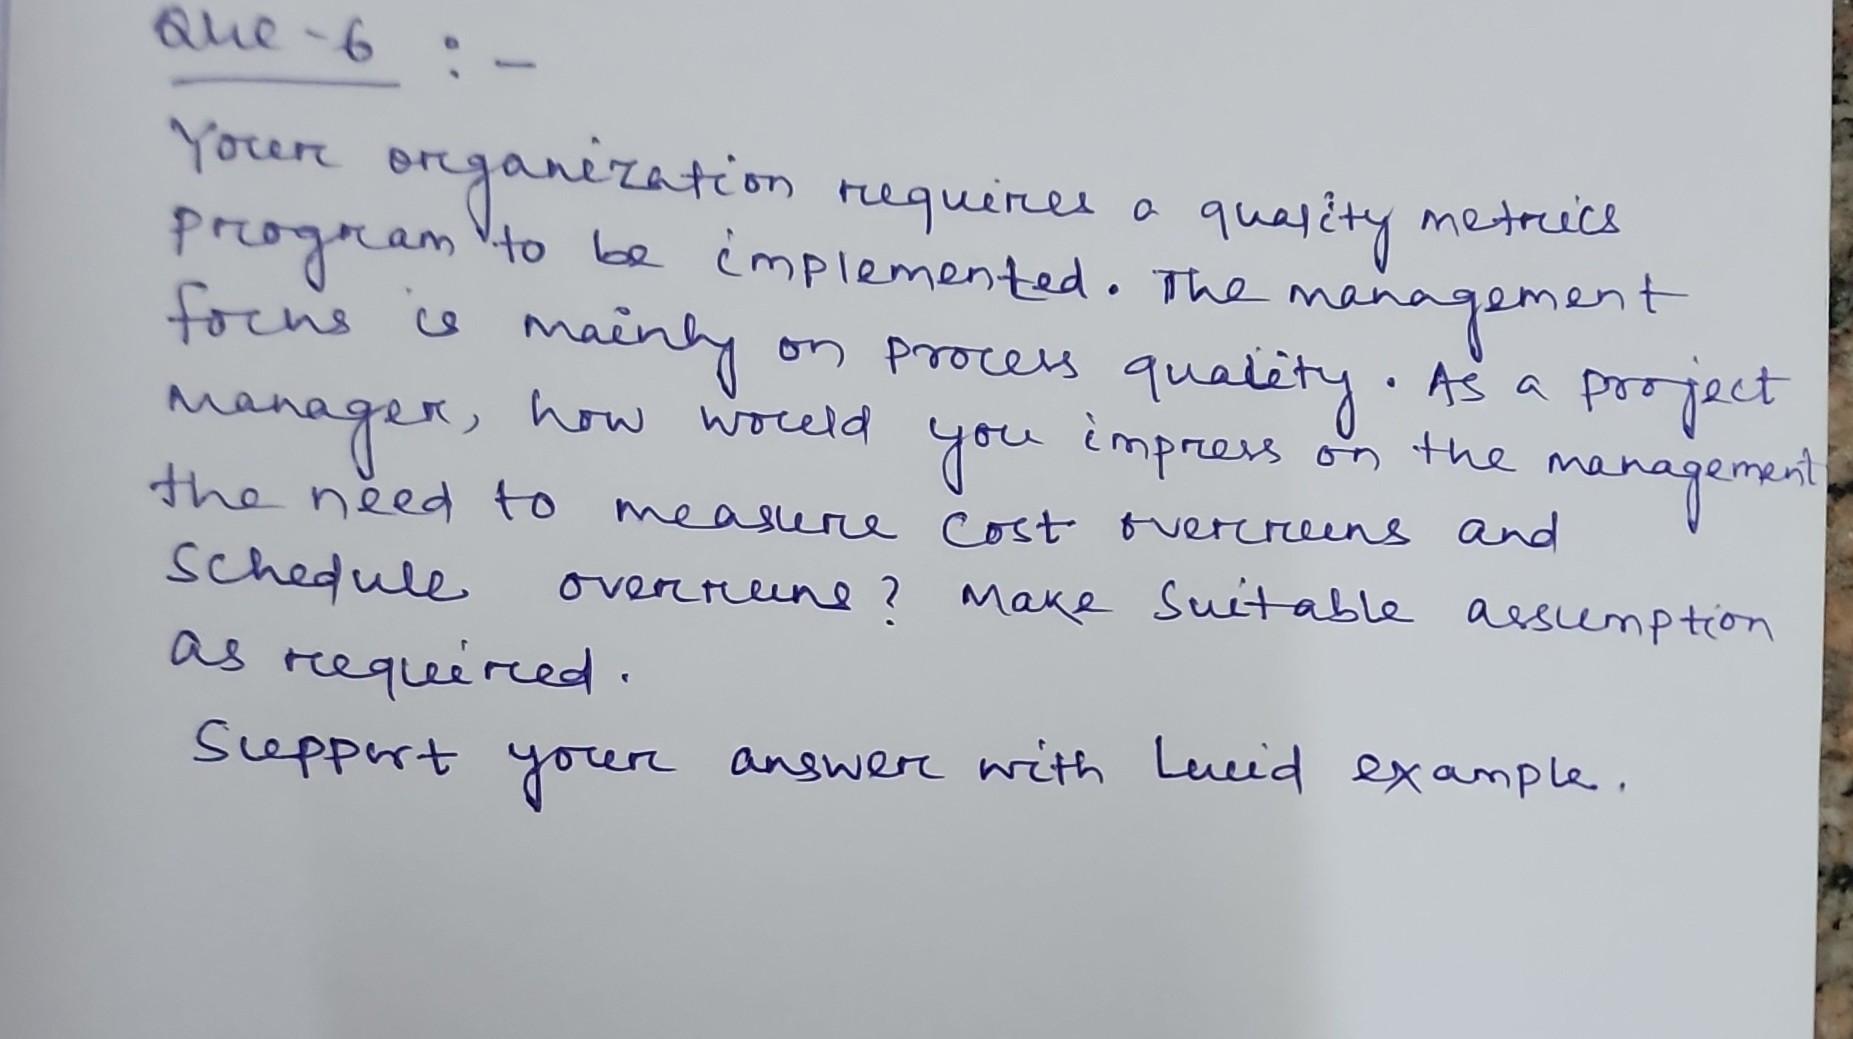 Que-6 :-
Your organization requires a quality metrics
program to be implemented. The management
focus is mainly on process quality. As a project
manager, how would you impress on the management
the need to measure cost overruns and
schedule overruns? Make suitable assumption
as required.
Support your answer with Lucid example.